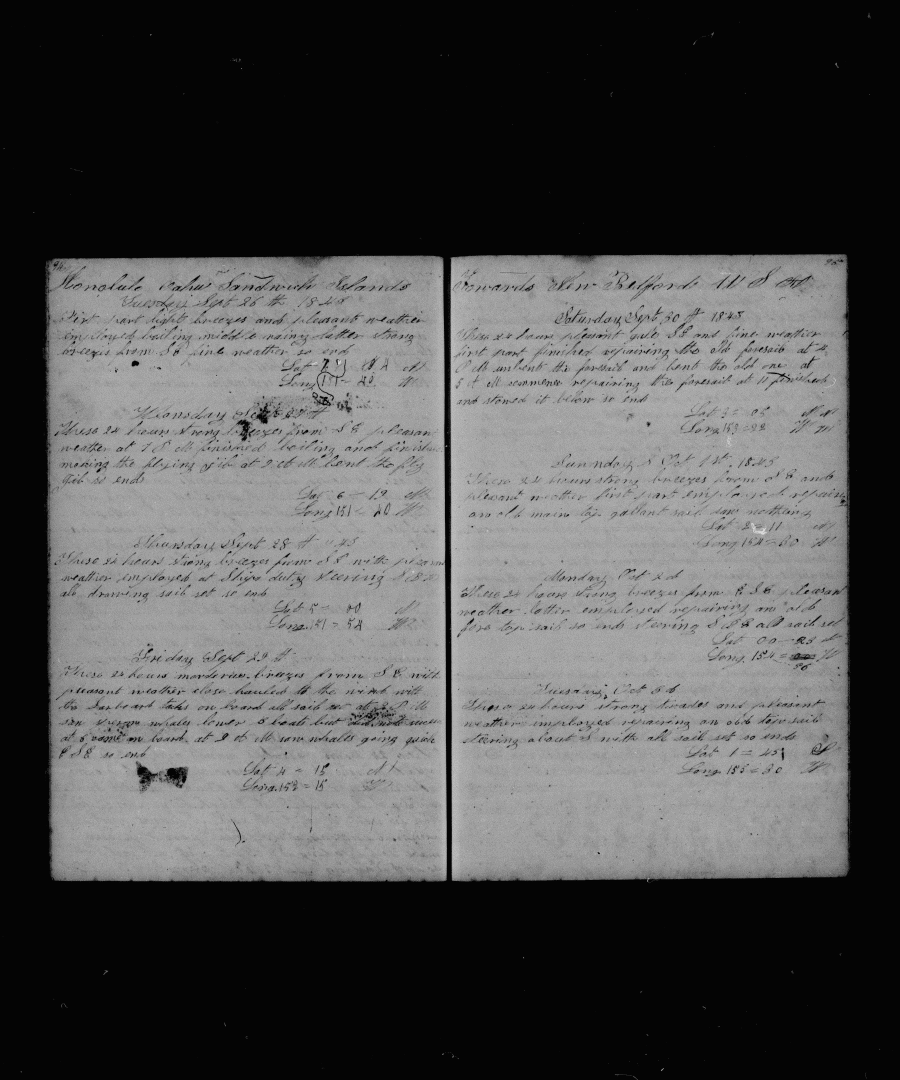 94
Honolulu Oahu Sandwich Islands
Tuesday Sept 26 th 1848
First part light breezes and pleasant weather
employed boiling middle raing latter strong
breezes from S E fine weather so ends
Lat 7
Long 151 = 29 W
Weansday Sept
These 24 hours strong breezes from S E pleasant
weather at 7 P M finished boiling and finished
the flying jib at 9 A M bent the flg
gib so ends
Lat 6 = 19 N
Long 151 = 20 W
Thursday Sept 28 th 48
These 24 hours strong breezes from S E with pleasant
weather employed at Ships duty steering
all drawing sail set so ends
Lat 5 = 00 N
Long 151 = 54 W
Friday Sept 29 th
These 24 hours morderun breezes from S E with
pleasant weather close hauled to the wind with
the larboard taks on board all sail set at P M
whales lower 3 boats but
at 6 came on board at 9 A M saw whales going quick
S E so ends
Lat 4 = 15 N
Long 152 = 15 W
95
Towards New Bedford U S
Saturday Sept 30 th 1848
These 24 hours pleasant gale S E and fine weather
first part finished repairing the old foresail at 4
P M unbent the foresail and bent the old one at
5 A M commence repairing the foresail at 11 finished
and stowed it below so ends
Lat 3 = 05 N
Long 153 = 22 W
Sunnday Oct 1st 1848
These 24 hours strong breezes from S E and
pleasant weather first part employed repairing
an old main top gallant sail
Lat 2 = 11 N
Long 154 = 30 W
Monday Oct 2 d
These 24 hours strong breezes from E S E pleasant
weather latter employed repairing an old
fore top sail so ends steering S S E all sail set
Lat 00 = 23 N
Long 154 = 56 W
Tuesday Oct 3 d
These 24 hours strong trades and pleasant
weather imployed repairing an old
steering about S with all sail set so ends
Lat 1 = 45 S
Long 155 = 30 W